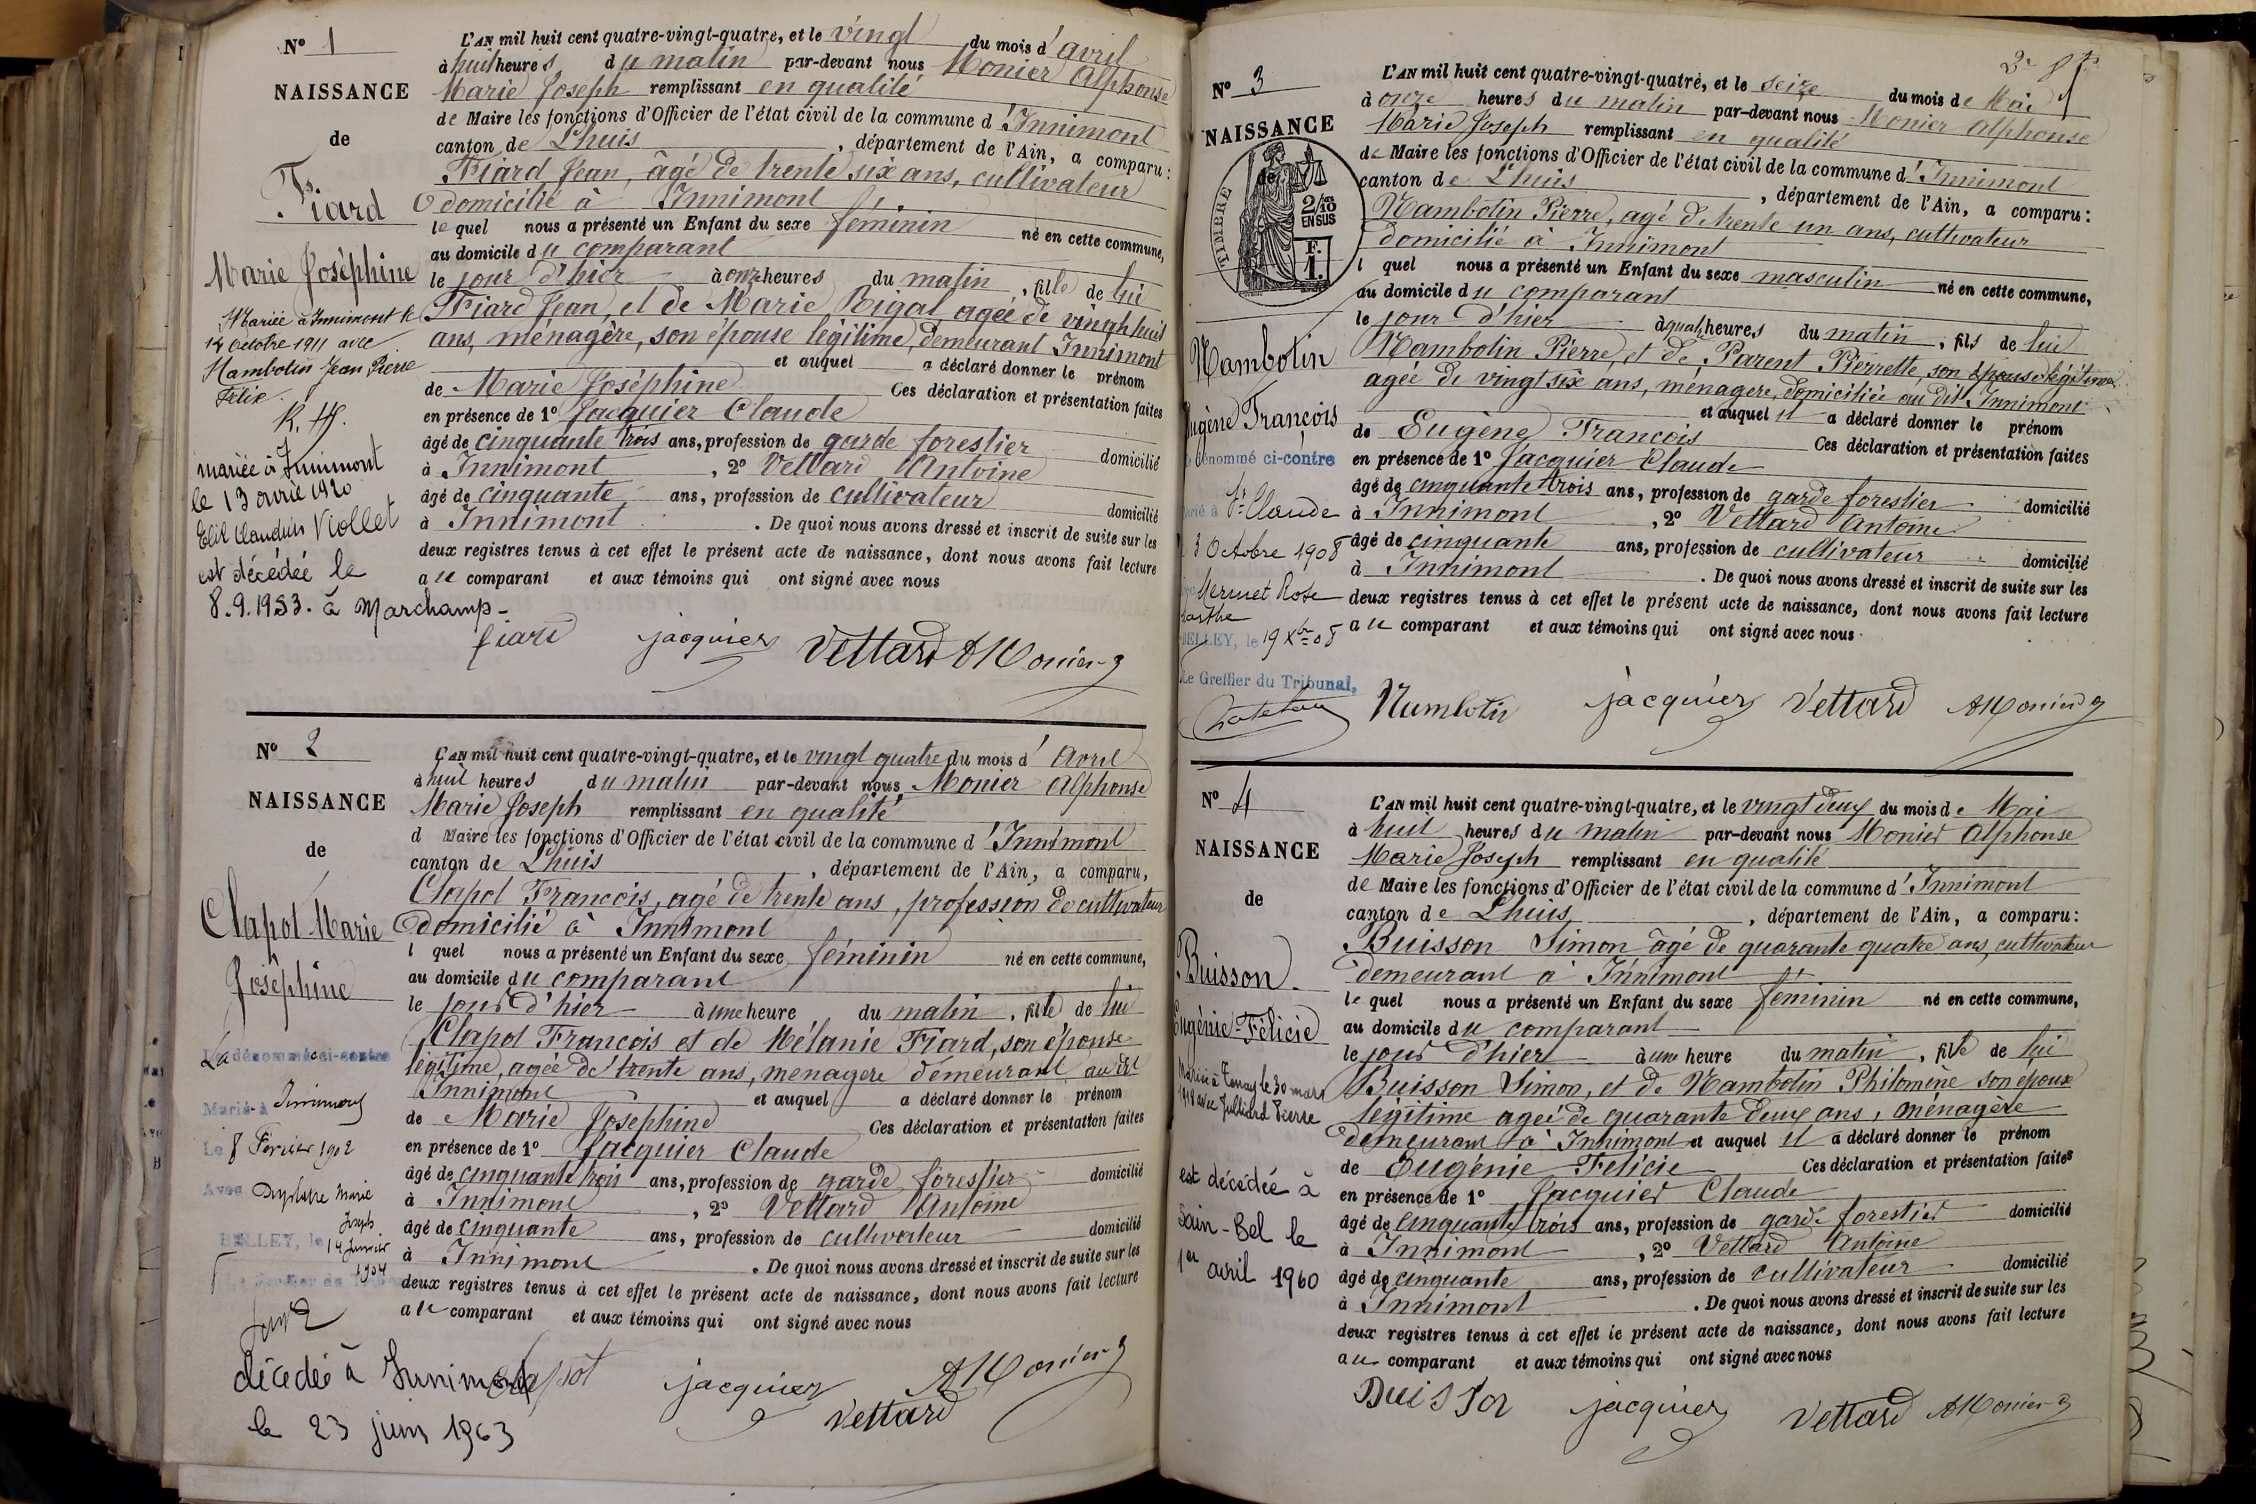 N° 1
NAISSANCE
de
Fiard
Marie Joséphine
Mariée à Innimont le
14 octobre 1911 avec
Nambotin Jean Pierre
Félix.
mariée à Innimont
le 13 avril 1920
Claudius Viollet
est décédée le
8.9.1953. à Marchamp
L'AN mil huit cent quatre-vingt-quatre, et le vingt du mois d'avril
à huit heures du matin par-devant nous Monier Alphonse
Marie Joseph remplissant en qualité
de Maire les fonctions d'Officier de l'état civil de la commune d'Innimont
canton de Lhuis, département de l'Ain, a comparu :
Fiard Jean, âgé de trente six ans, cultivateur
domicilié à Innimont
lequel nous a présenté un Enfant du sexe féminin né en cette commune,
au domicile du comparant
le jour d'hier à onze heures du matin, fille de lui
Fiard Jean, et de Marie Rigal agée de vingt huit
ans, ménagère, son épouse légitime, demeurant Innimont
et auquel a déclaré donner le prénom
de Marie Joséphine Ces déclaration et présentation faites
en présence de 1° Jacquier Claude
âgé de cinquante trois ans, profession de garde forestier domicilié
à Innimont, 2° Vettard Antoine
âgé de cinquante ans, profession de cultivateur domicilié
à Innimont. De quoi nous avons dressé et inscrit de suite sur les
deux registres tenus à cet effet le présent acte de naissance, dont nous avons fait lecture
au comparant et aux témoins qui ont signé avec nous
fiard jacquier Vettard AMonier
N° 2
NAISSANCE
de
Clapot Marie
Joséphine
La dénommé ci-contre
Marié à Innimont
Le 8 Février 1902
Avec Marie
Joseph
BELLEY, le 14 Janvier
1904
décédée à Innimont
le 23 juin 1963
L'AN mil huit cent quatre-vingt-quatre, et le vingt quatre du mois d'Avril
à huit heures du matin par-devant nous Monier Alphonse
Marie Joseph remplissant en qualité
d Maire les fonctions d'Officier de l'état civil de la commune d'Innimont
canton de Lhuis, département de l'Ain, a comparu,
Clapot Francois, agé de trente ans, profession de cultivateur
domicilié à Innimont
l quel nous a présenté un Enfant du sexe féminin né en cette commune,
au domicile du comparant
le jour d'hier à une heure du matin, fille de lui
Clapot Francois et de Mélanie Fiard, son épouse
légitime, agée de trente ans, menagere demeurant au dit
Innimont et auquel a déclaré donner le prénom
de Marie Josephine Ces déclaration et présentation faites
en présence de 1° Jacquier Claude
âgé de cinquante trois ans, profession de garde forestier domicilié
à Innimont, 2° Vettard Antoine
âgé de cinquante ans, profession de cultivateur domicilié
à Innimont. De quoi nous avons dressé et inscrit de suite sur les
deux registres tenus à cet effet le présent acte de naissance, dont nous avons fait lecture
au comparant et aux témoins qui ont signé avec nous
Clapot jacquier Vettard AMonier
N° 3
NAISSANCE
de
TIMBRE
2/10
EN SUS
F.
1.
Nambotin
Eugène François
dénommé ci-contre
Marié à St Claude
3 Octobre 1908
Mermet Rose
Marthe
BELLEY, le 19 Xbre 08
Le Greffier du Tribunal,
L'AN mil huit cent quatre-vingt-quatre, et le seize du mois de Mai
à onze heures du matin par-devant nous Monier Alphonse
Marie Joseph remplissant en qualité
de Maire les fonctions d'Officier de l'état civil de la commune d'Innimont
canton de Lhuis, département de l'Ain, a comparu :
Nambotin Pierre, agé de trente un ans, cultivateur
domicilié à Innimont
l quel nous a présenté un Enfant du sexe masculin né en cette commune,
au domicile du comparant
le jour d'hier à quatre heures du matin, fils de lui
Nambotin Pierre, et de Parent Pierrette, son épouse légitime
agée de vingt six ans, ménagere, domiciliée au dit Innimont
et auquel il a déclaré donner le prénom
de Eugène François Ces déclaration et présentation faites
en présence de 1° Jacquier Claude
âgé de cinquante trois ans, profession de garde forestier domicilié
à Innimont, 2° Vettard Antoine
âgé de cinquante ans, profession de cultivateur domicilié
à Innimont. De quoi nous avons dressé et inscrit de suite sur les
deux registres tenus à cet effet le présent acte de naissance, dont nous avons fait lecture
au comparant et aux témoins qui ont signé avec nous
Nambotin jacquier Vettard AMonier
N° 4
NAISSANCE
de
Buisson
Eugénie-Félicie
Mariée à Tenay le 30 mars
1918 avec Julliard Pierre
est décédée à
Sain-Bel le
1er avril 1960
L'AN mil huit cent quatre-vingt-quatre, et le vingt deux du mois de Mai
à huit heures du matin par-devant nous Monier Alphonse
Marie Joseph remplissant en qualité
de Maire les fonctions d'Officier de l'état civil de la commune d'Innimont
canton de Lhuis, département de l'Ain, a comparu :
Buisson Simon âgé de quarante quatre ans, cultivateur
demeurant à Innimont
lequel nous a présenté un Enfant du sexe féminin né en cette commune,
au domicile du comparant
le jour d'hier à une heure du matin, fille de lui
Buisson Simon, et de Nambotin Philomène son épouse
légitime agée de quarante deux ans, ménagère
demeurant à Innimont et auquel il a déclaré donner le prénom
de Eugénie Félicie Ces déclaration et présentation faites
en présence de 1° Jacquier Claude
âgé de cinquante trois ans, profession de garde forestier domicilié
à Innimont, 2° Vettard Antoine
âgé de cinquante ans, profession de cultivateur domicilié
à Innimont. De quoi nous avons dressé et inscrit de suite sur les
deux registres tenus à cet effet le présent acte de naissance, dont nous avons fait lecture
au comparant et aux témoins qui ont signé avec nous
Buisson jacquier Vettard AMonier